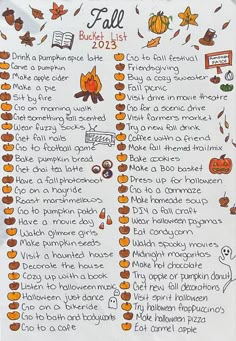 Fall
Bucket List
2023
Drink a pumpkin spice latte
Carve a pumpkin
Make apple cider
Make a pie
Sit by fire
Go on morning walk
Get something fall scented
Wear fuzzy socks
Get fall nails
Go to football game
Bake pumpkin bread
Get chai tea latte
Have a fall photoshoot
Go on a hayride
Roast marshmellows
Go to pumpkin patch
Have a movie day
Watch gilmore girls
Make pumpkin seeds
Visit a haunted house
Decorate the house
Cozy up with a book
Listen to halloween music
Halloween just dance
Go on a bikeride
Go to bath and bodyworks
Go to a cafe
Go to fall festival
Friendsgiving
Buy a cozy sweater
Fall picnic
Visit drive in movie theatre
Go for a scenic drive
Visit farmers market
Try a new fall drink
Coffee with a friend
Make fall themed trailmix
Bake cookies
Make a BOO basket
Dress up for halloween
Go to a cornmaze
Make homemade soup
DIY a fall craft
Wear halloween pajamas
Eat candycorn
Watch spooky movies
Midnight margaritas
Make hot chocolate
Try apple or pumpkin donut
Get new fall decorations
Visit spirit halloween
Try halloween frappuccinos
Make halloween pizza
Eat carmel apple